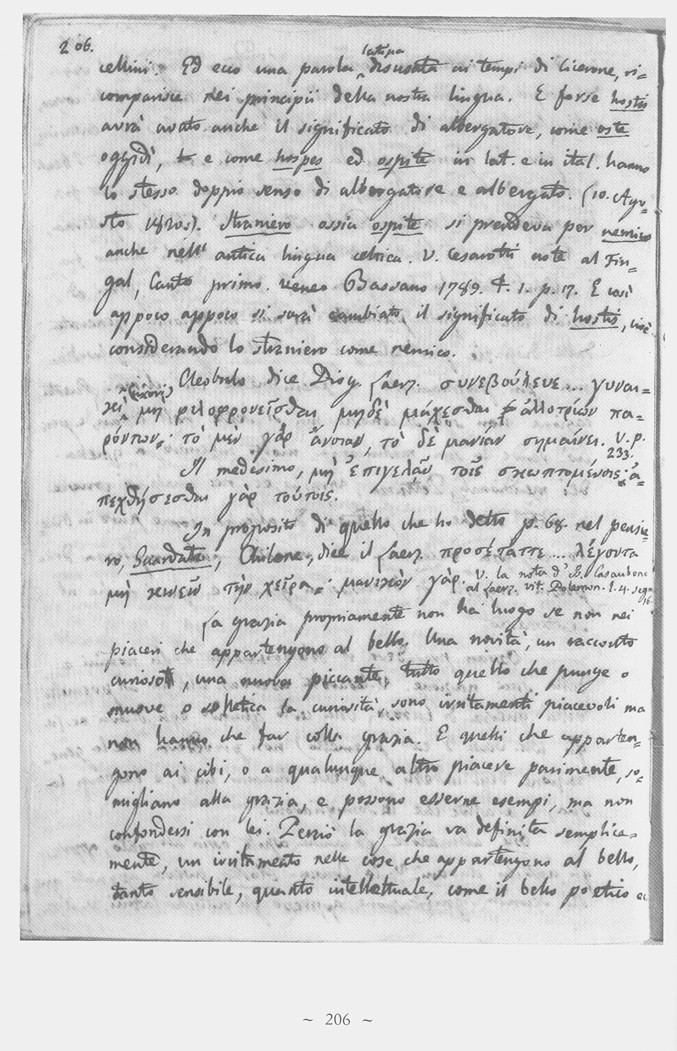 206.
cellini. Ed ecco una parola latina disusata ai tempi di Cicerone, ri-
comparisce nei principii della nostra lingua. E forse hostis
avrà avuto anche il significato di albergatore, come oste
oggidì, e come hospes ed ospite in lat. e in ital. hanno
lo stesso doppio senso di albergatore e albergato. (10. Ago-
sto 1820.). Straniero ossia ospite si prendeva per nemico
anche nell' antica lingua celtica. V. Cesarotti note al Fin-
gal, Canto primo. Bassano 1789. t. 1. p. 17. E così
appoco appoco si sarà cambiato il significato di hostis, cioè
considerando lo straniero come nemico.
Cleobulo dice Diog. Laerz. συνεβούλευε ... γυναι-
κὶ (uxori) μὴ φιλοφρονεῖσθαι μηδὲ μάχεσθαι ἀλλοτρίων πα-
ρόντων· τὸ μὲν γὰρ ἄνοιαν, τὸ δὲ μανίαν σημαίνει. V. p.
233.
Il medesimo, μὴ ἐπιγελᾷν τοῖς σκωπτομένοις· ἀ-
πεχθήσεσθαι γὰρ τούτοις.
In proposito di quello che ho detto p. 68. nel pensie-
ro, Guardate, Chilone, dice il Laerz. προσέταττε ... λέγοντα
μὴ κινεῖν τὴν χεῖρα· μανικὸν γάρ. V. la nota d' Is. Casaubono
al Laerz. vit. Polemon. l. 4. segm.
16.
La grazia propriamente non ha luogo se non nei
piaceri che appartengono al bello. Una novità, un racconto
curioso, una nuova piccante, tutto quello che punge o
muove o solletica la curiosità, sono irritamenti piacevoli ma
non hanno che far colla grazia. E quelli che apparten-
gono ai cibi, o a qualunque altro piacere parimente, so-
migliano alla grazia, e possono esserne esempi, ma non
confondersi con lei. Perciò la grazia va definita semplice-
mente, un irritamento nelle cose che appartengono al bello,
tanto sensibile, quanto intellettuale, come il bello poetico ec
~ 206 ~